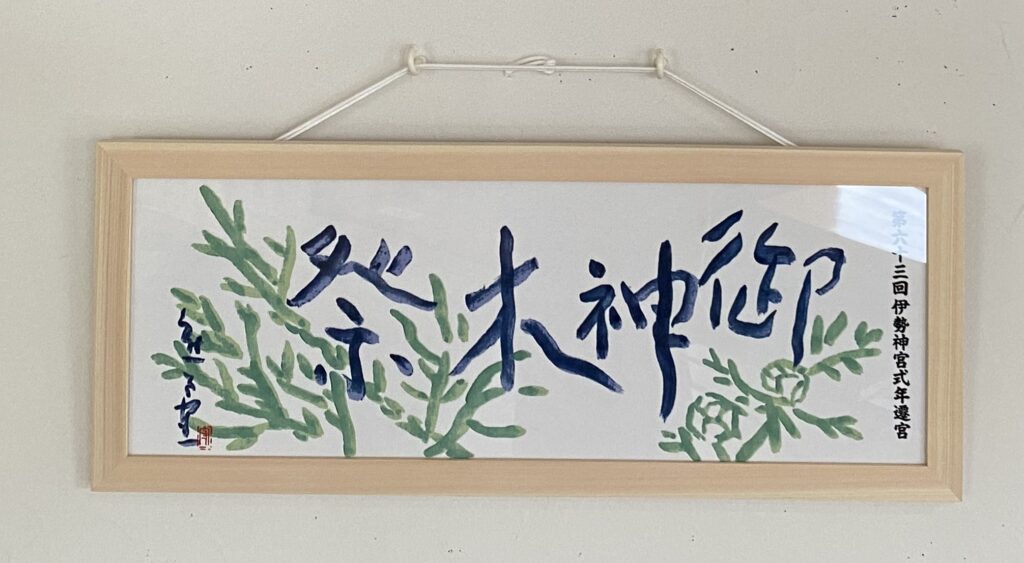 第六十三回 伊勢神宮式年遷宮
御神木祭